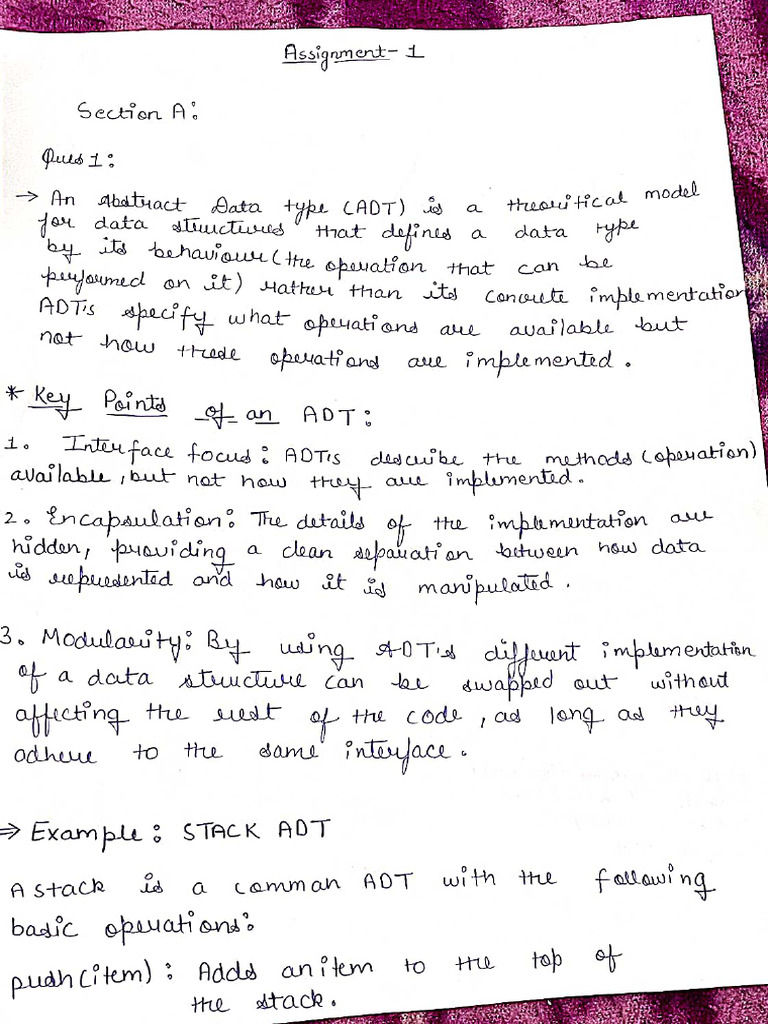 Assignment - 1
Section A:
Ques 1:
→ An Abstract Data type (ADT) is a theoritical model
for data structures that defines a data type
by its behaviour (the operation that can be
performed on it) rather than its concrete implementation
ADT's specify what operations are available but
not how these operations are implemented.
* Key Points of an ADT:
1. Interface focus: ADT's describe the methods (operation)
available, but not how they are implemented.
2. Encapsulation: The details of the implementation are
hidden, providing a clean separation between how data
is represented and how it is manipulated.
3. Modularity: By using ADT's different implementation
of a data structure can be swapped out without
affecting the rest of the code, as long as they
adhere to the same interface.
⇒ Example: STACK ADT
A stack is a comman ADT with the following
basic operations:
push(item): Adds an item to the top of
the stack.